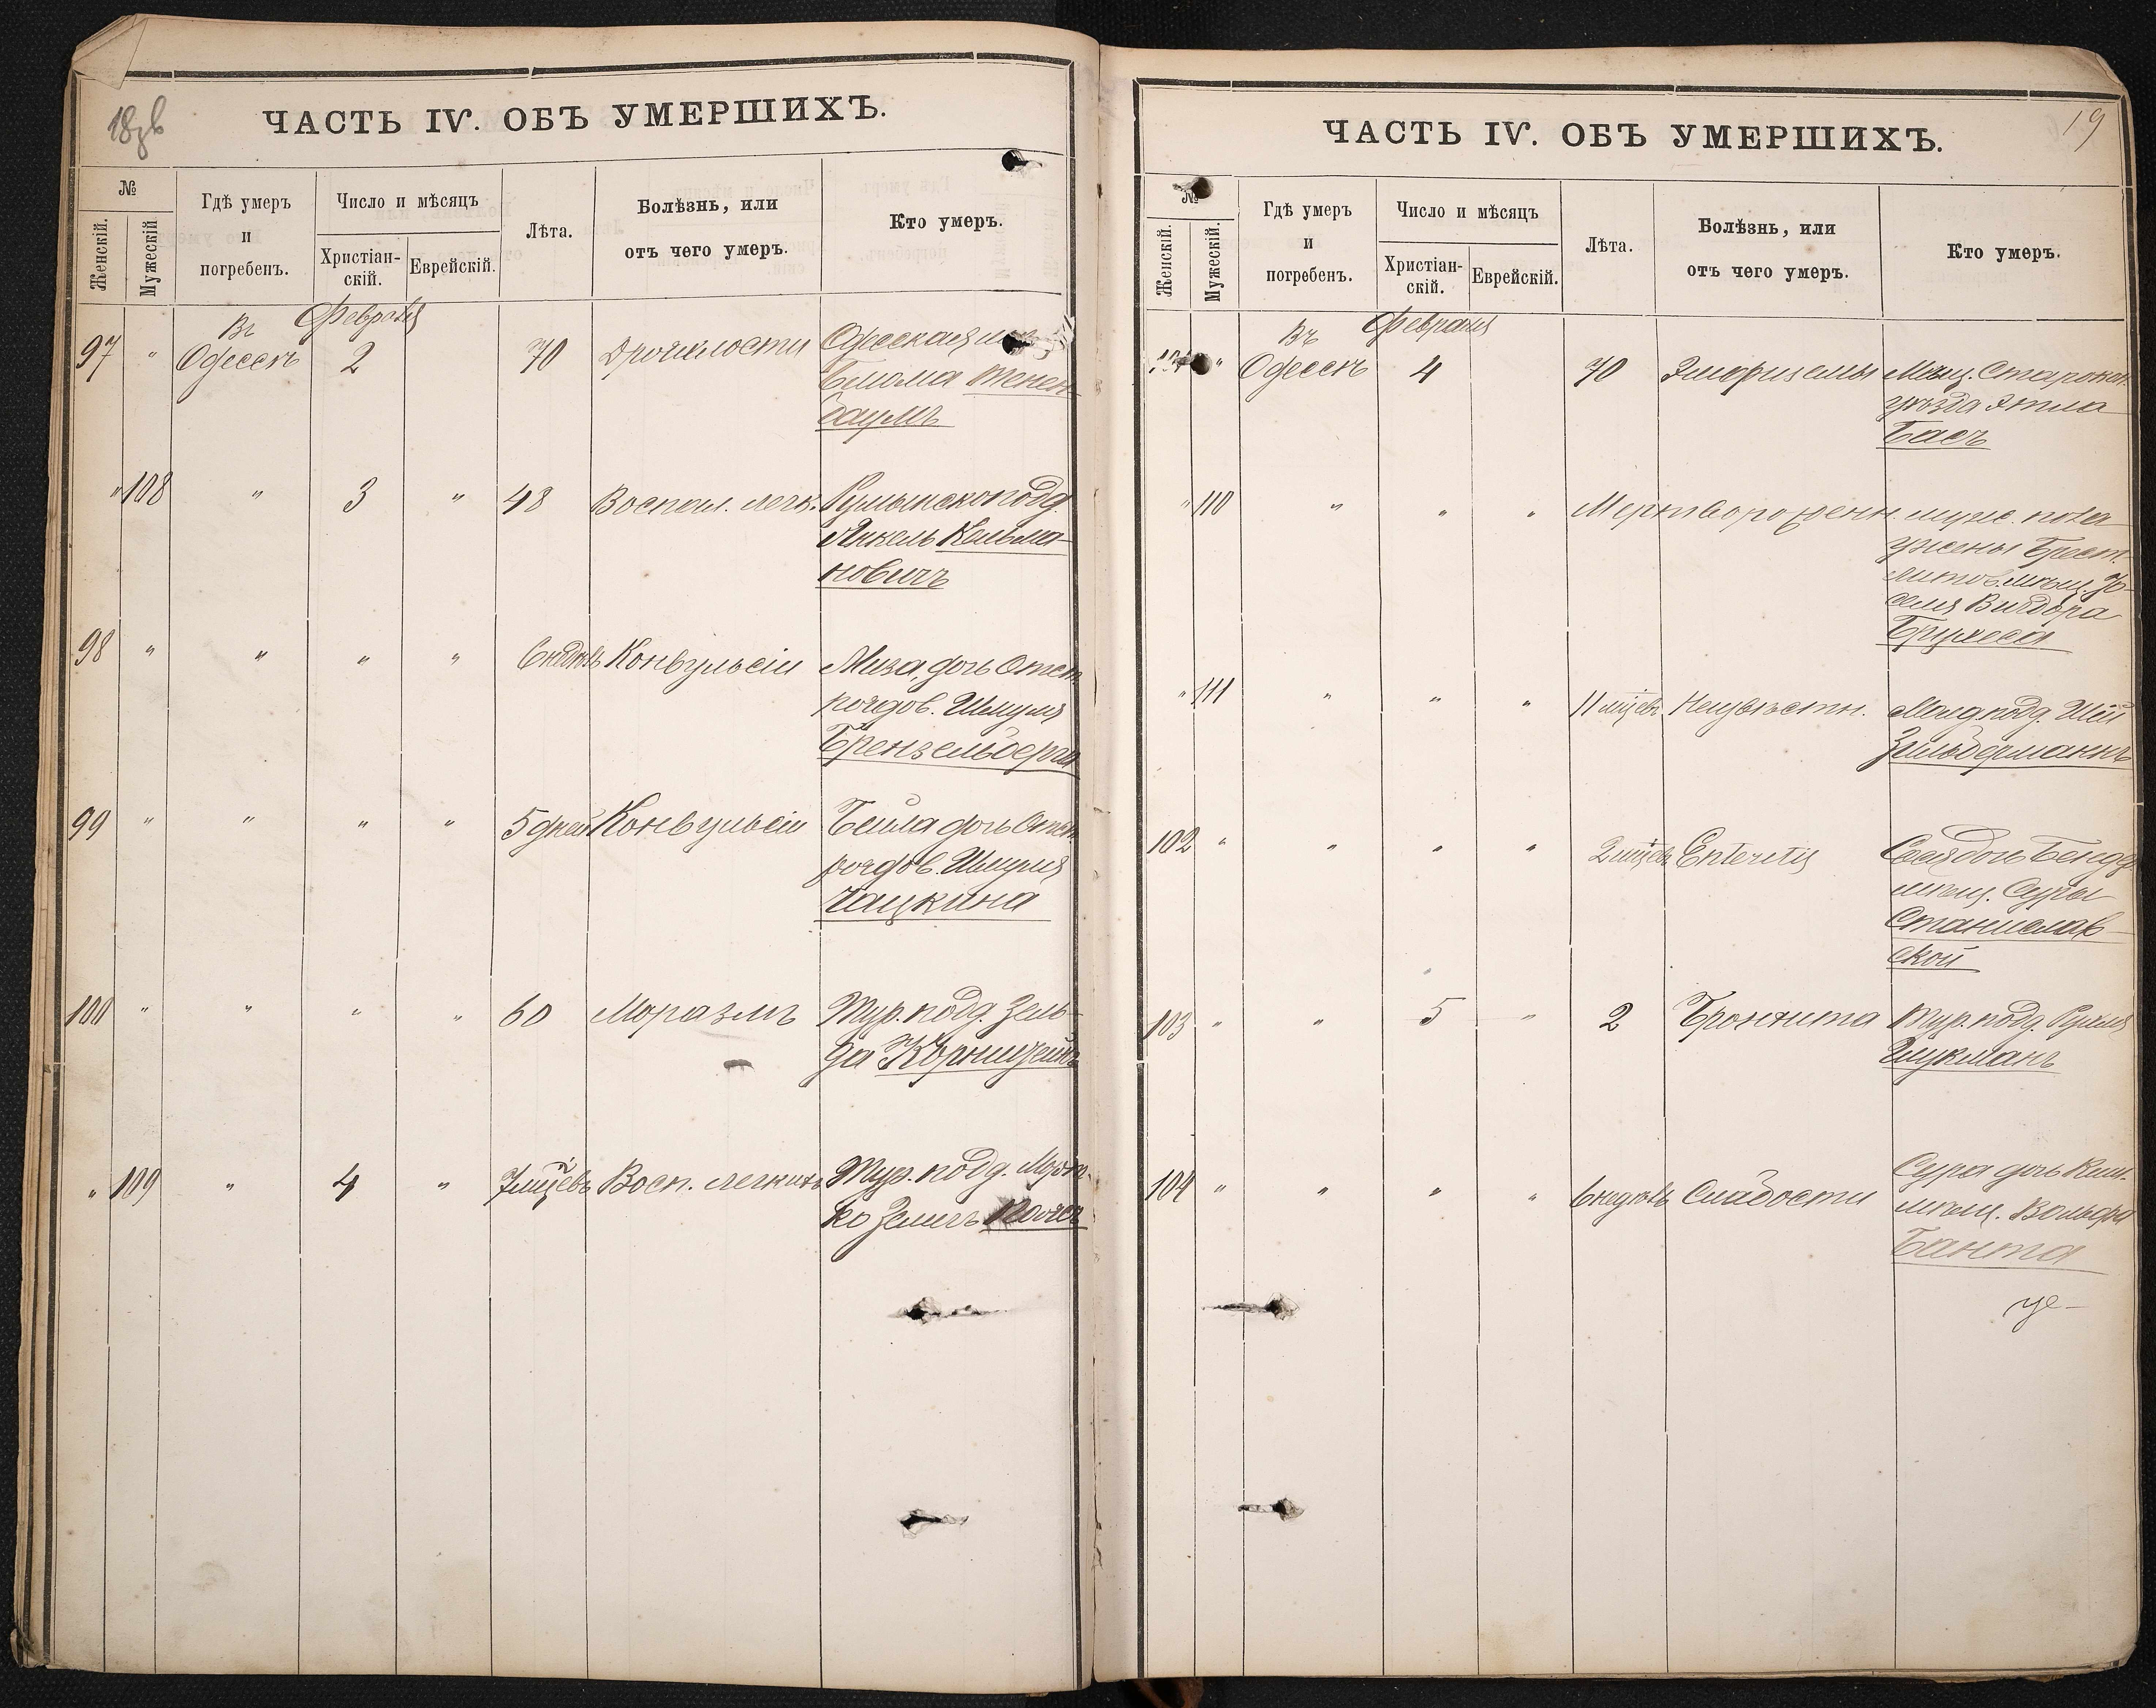 18зв
ЧАСТЬ IV. ОБЪ УМЕРШИХЪ.
№
Женскій.
Мужескій
Гдѣ умеръ
и
погребенъ.
Число и мѣсяцъ
Христіан-
скій.
Еврейскій.
Лѣта.
Болѣзнь, или
отъ чего умеръ.
Кто умеръ.
Въ Февраля
97 " Одессѣ 2 70 Дряхлости Одесская
Блюма Тенен-
баумъ
" 108 " 3 " 48 Воспал. легк. Румынско подд.
Янкель Кельма-
новичъ
98 " " " " 6 недѣль Конвульсіи Миза, дочь Отст.
рядов. Шмуля
Брензельберга
99 " " " " 5 дней Конвульсіи Бейла дочь Отст.
рядов. Шмуля
Чацкина
100 " " " " 60 Маразмъ Тур. подд. Зель-
да Корншейнъ
" 109 " 4 " 7 мѣцевъ Восп. легкихъ Тур. подд. Морт-
ко Зелигъ
19
ЧАСТЬ IV. ОБЪ УМЕРШИХЪ.
№
Женскій.
Мужескій.
Гдѣ умеръ
и
погребенъ.
Число и мѣсяцъ
Христіан-
скій.
Еврейскій.
Лѣта.
Болѣзнь, или
отъ чего умеръ.
Кто умеръ.
Въ Февраля
101 " Одессѣ 4 70 Эмфиземы Мѣщ. Старокон.
уѣзда Этла
Басъ
" 110 " " " Мертворожденн. муж. пола
у жены Брест.
Литов. мѣщ. Іо-
селя Вигдора
Брумеса
" 111 " " " 11 мѣцевъ Неизвѣстн. Молд. подд. Шій
Зильберманнъ
102 " " " " 2 мѣцевъ Enteritis Сося дочь Бендер.
мѣщ. Суры
Станислав-
ской
103 " " 5 " 2 Бронхита Тур. подд. Рухля
Шукманъ
104 " " " " 6 недѣль Слабости Сура дочь Киш.
мѣщ. Вольфа
Банта